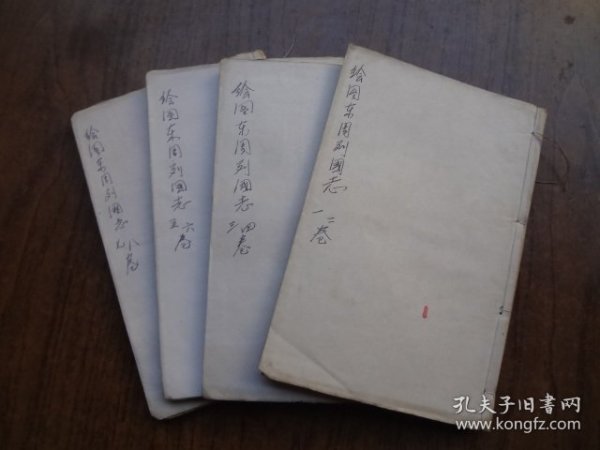 绘图东周列國志
一二卷
绘图东周列國志
三四卷
绘图东周列國志
五六卷
绘图东周列國志
七八卷
孔夫子旧书网
www.kongfz.com